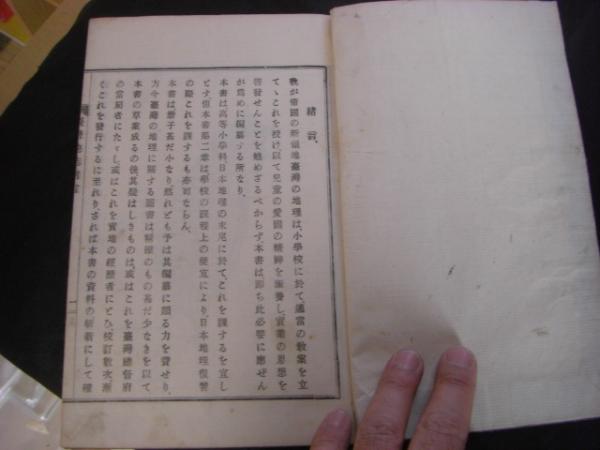 緒言、
我が帝國の新領地臺灣の地理は、小學校に於て、適當の教案を立
てゝこれを授け以て兒童の愛國の精神を涵養し、實業の思想を
啓發せんことを勉めざるべからず、本書は即ち此必要に應ぜん
が爲めに編纂する所なり、
本書は高等小學科日本地理の末尾に於て、これを課するを宜し
とす、但本書第二章は學校の課程上の便宜により、日本地理復習
の際これを課するも亦可ならん、
本書は册子甚だ小なり、然れども予は其編纂に頗る力を費せり、
方今臺灣の地理に關する圖書は精確のもの甚だ少なきを以て
本書の草案成るの後其疑はしきものは、或はこれを臺灣總督府
の當局者にたゞし、或はこれを實地の經歷者にとひ、校訂數次漸
くこれを發行するに至れり、されば本書の資料の斬新にして確